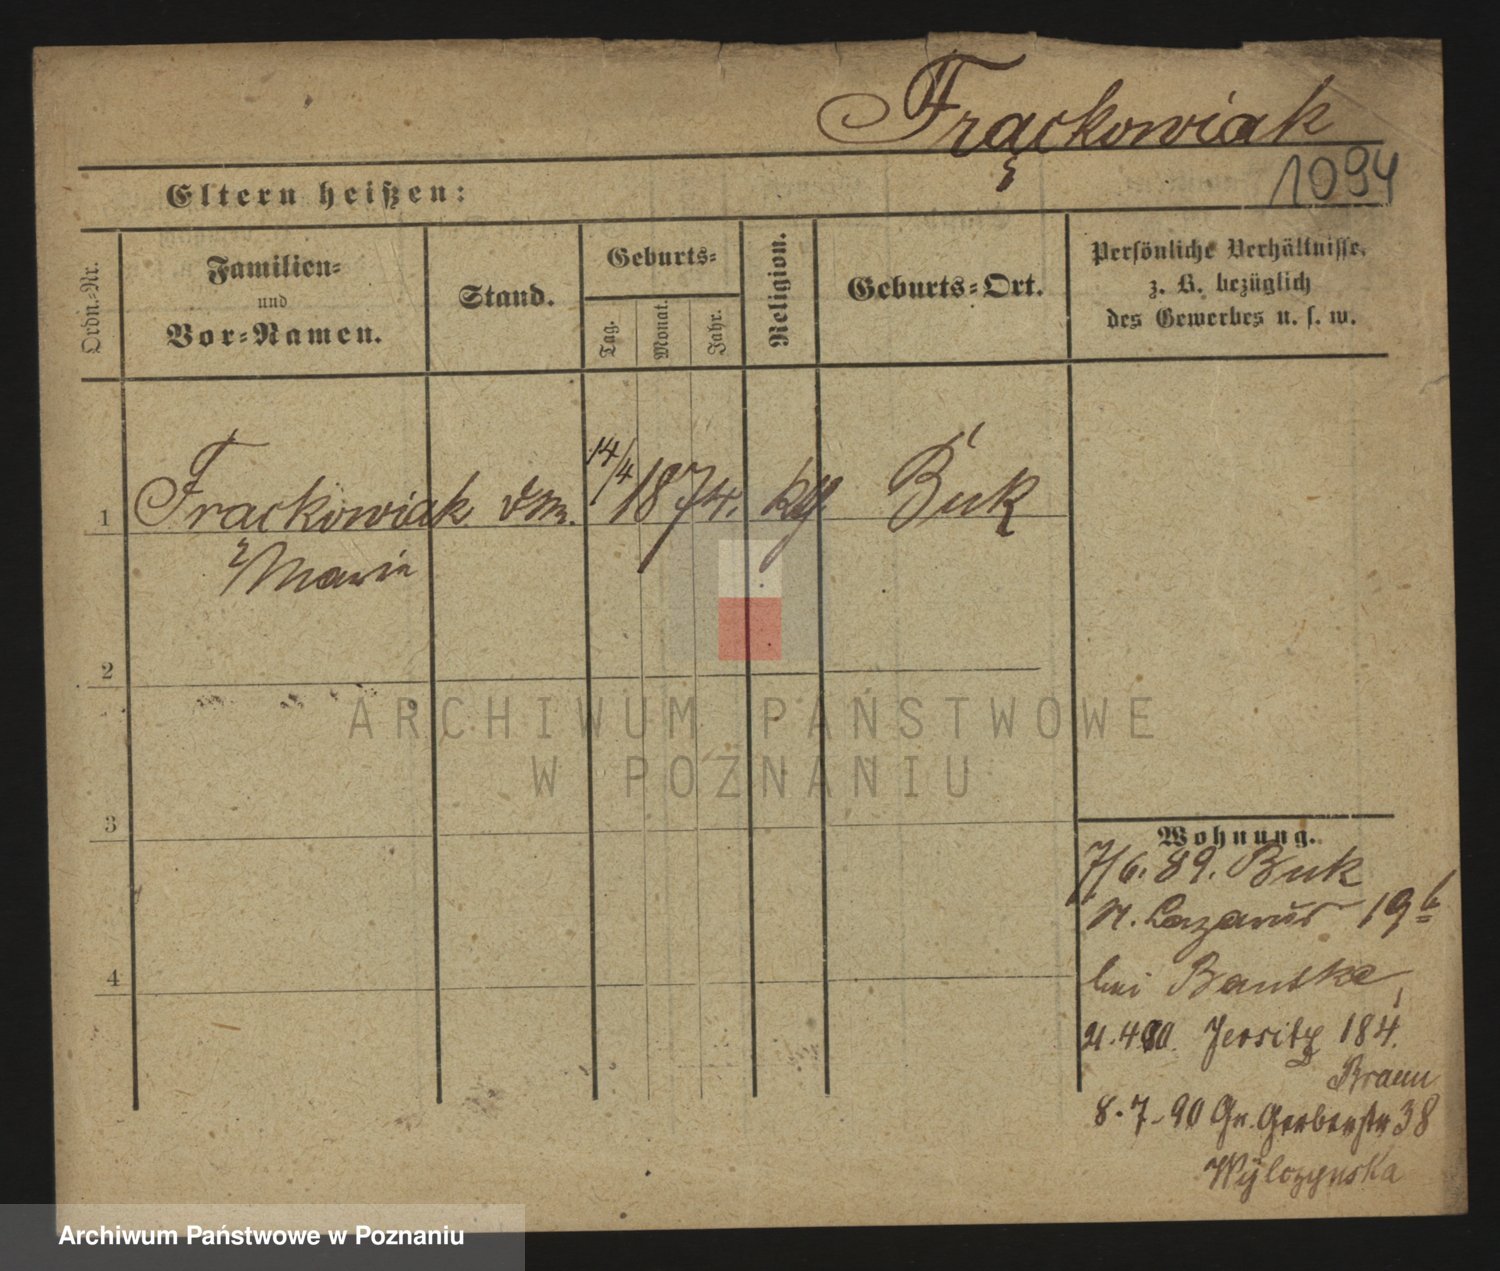 Frąckowiak
1094
Eltern heißen:
Ordn.-Nr.
Familien-
und
Vor-Namen.
Stand.
Geburts-
Tag.
Monat.
Jahr.
Religion.
Geburts-Ort.
Persönliche Verhältnisse,
z. B. bezüglich
des Gewerbes u. s. w.
1
Frąckowiak
14/4 1874.
Buk
Marie
2
ARCHIWUM PAŃSTWOWE
W POZNANIU
3
Wohnung.
7/6. 89. Buk
St. Lazarus 19b
4
bei
21.4.90. Jersitz 184.
Braun
8.-7.-90 Gr. Gerberstr 38
Archiwum Państwowe w Poznaniu